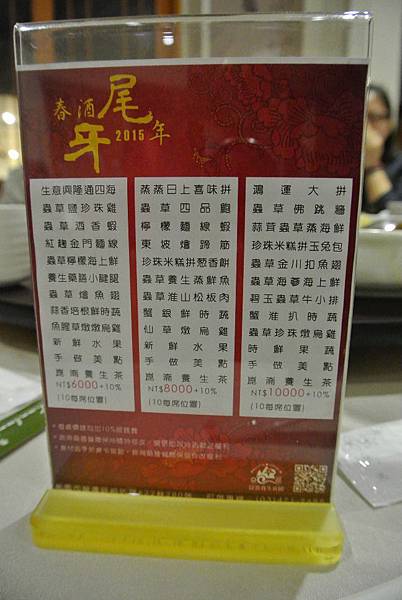 春酒尾牙 2015年
生意興隆通四海
蟲草鹽珍珠雞
蟲草酒香蝦
紅麴金門麵線
蟲草檸檬海上鮮
養生藥膳小腱腿
蟲草燴魚翅
蒜香培根鮮時蔬
魚腥草燉燉烏雞
新鮮水果
手做美點
崑崙養生茶
NT$6000+10%
(10每席位置)
蒸蒸日上喜味拼
蟲草四品鮑
檸檬麵線蝦
東坡燴蹄筋
珍珠米糕拼葱香餅
蟲草養生蒸鮮魚
蟲草淮山松板肉
蟹銀鮮時蔬
仙草燉雞
新鮮水果
手做美點
崑崙養生茶
NT$8000+10%
(10每席位置)
鴻運大拼
蟲草佛跳牆
蒜茸蟲草蒸海鮮
珍珠米糕拼玉兔包
蟲草金川扣魚翅
蟲草海蔘海上鮮
碧玉蟲草牛小排
蟹淮扒時蔬
蟲草珍珠燉烏雞
時鮮果蔬
手做美點
崑崙養生茶
NT$10000+10%
(10每席位置)